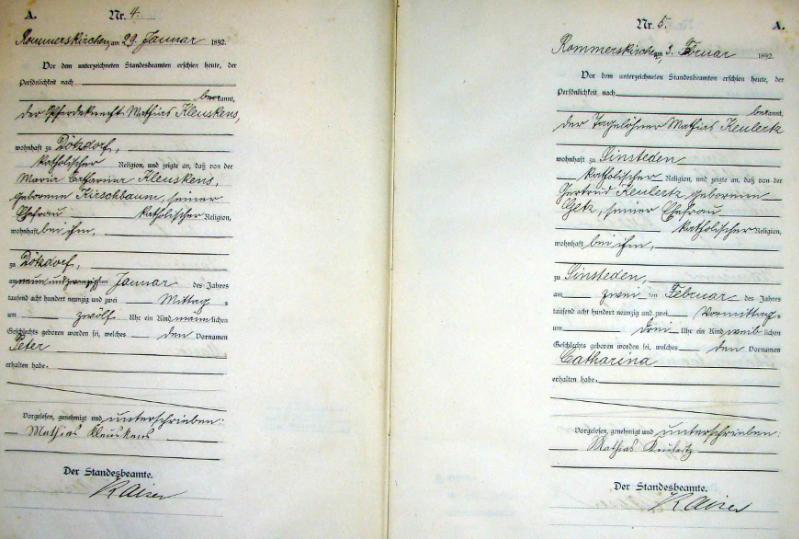 A. Nr. 4.
Rommerskirchen am 29. Januar 1892.
Vor dem unterzeichneten Standesbeamten erschien heute, der
Persönlichkeit nach
bekannt,
der Pferdeknecht Mathias Kleuskens,
wohnhaft zu Dötzdorf,
katholischer Religion, und zeigte an, daß von der
Maria Catharina Kleuskens,
geborene Kirschbaum, seiner
Ehefrau katholischer Religion,
wohnhaft bei ihm,
zu Dötzdorf,
am neun und zwanzigsten Januar des Jahres
tausend acht hundert neunzig und zwei Mittag s
um zwölf Uhr ein Kind männlichen
Geschlechts geboren worden sei, welches den Vornamen
Peter
erhalten habe.
Vorgelesen, genehmigt und unterschrieben:
Mathias Kleuskens
Der Standesbeamte.
Kaiser
Nr. 5. A.
Rommerskirchen am 3. Februar 1892.
Vor dem unterzeichneten Standesbeamten erschien heute, der
Persönlichkeit nach
bekannt,
der Tagelöhner Mathias
wohnhaft zu Sinsteden
katholischer Religion, und zeigte an, daß von der
Gertrud geborenen
seiner Ehefrau
katholischer Religion,
wohnhaft bei ihm,
zu Sinsteden,
am zwei ten Februar des Jahres
tausend acht hundert neunzig und zwei Vormittag s
um drei Uhr ein Kind weiblichen
Geschlechts geboren worden sei, welches den Vornamen
Catharina
erhalten habe.
Vorgelesen, genehmigt und unterschrieben:
Mathias
Der Standesbeamte.
Kaiser